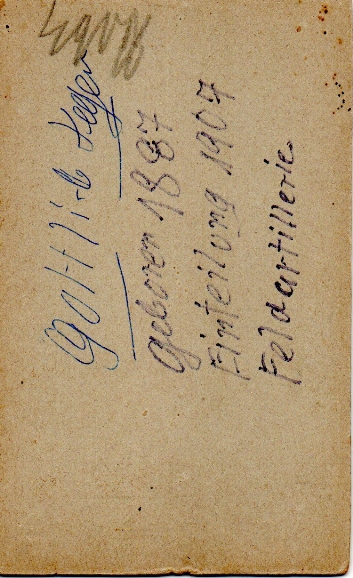 Gottlieb Seger
geboren 1887
Einteilung 1907
Feldartillerie